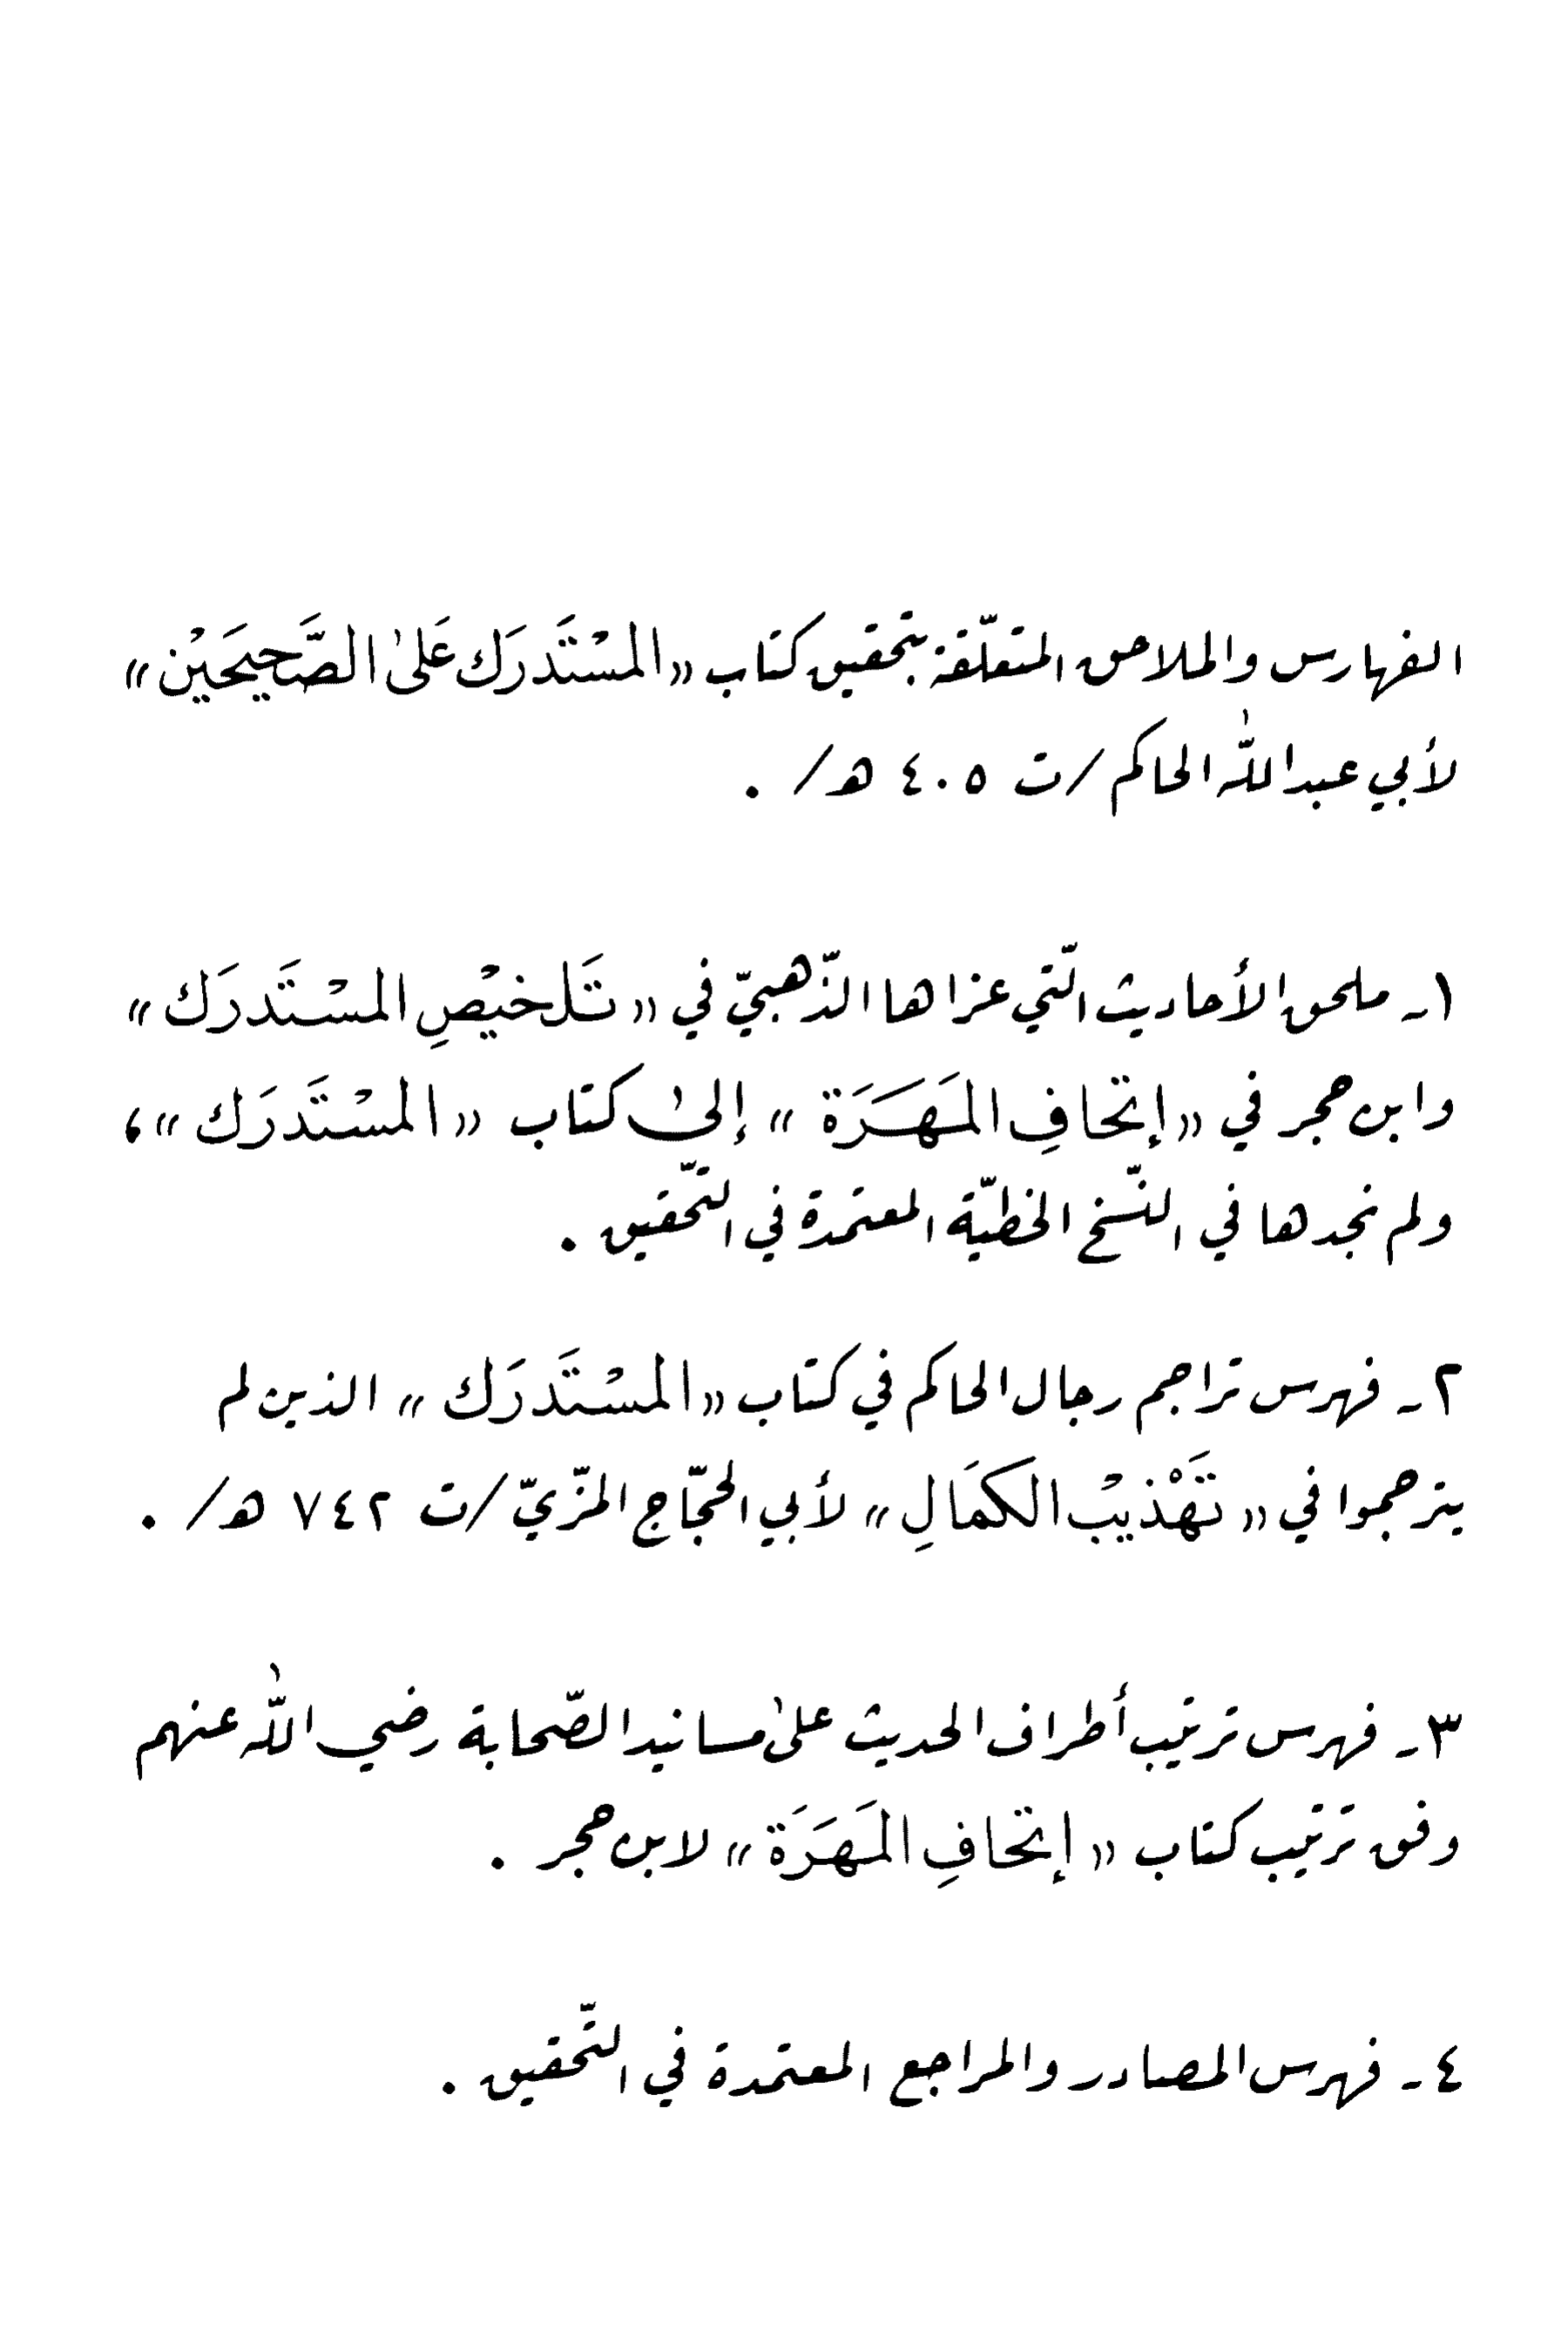 الفهارس والملاحق المتعلّقة بتحقيق كتاب «المسْتَدرَك عَلىٰ الصَّحِيحَيْن»
لأبي عبد اللّٰه الحاكم /ت ٤٠٥ هـ/ .
١ـ ملحق الأحاديث الّتي عزاها الذّهبيّ في «تَلخيْصِ المسْتَدرَك»
وابن حجر في «إتحَافِ المَهَرَة» إلىٰ كتاب «المسْتَدرَك»،
ولم نجدها في النّسخ الخطيّة المعتمدة في التّحقيق .
٢ـ فهرس تراجم رجال الحاكم في كتاب «المسْتَدرَك» الذين لم
يترجموا في «تَهْذيْب الكمَالِ» لأبي الحجّاج المزّيّ /ت ٧٤٢ هـ/ .
٣ـ فهرس ترتيب أطراف الحديث علىٰ مسانيد الصّحابة رضي اللّٰه عنهم
وفق ترَتيب كتاب «إتحَافِ المَهَرَة» لابن حجر .
٤ـ فهرس المصادر والمراجع المعتمدة في التّحقيق .